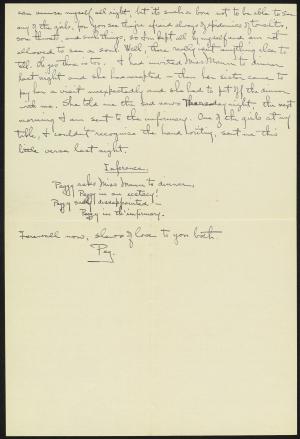 can amuse myself all right but it's such a bore not to be able to see
any of the girls, for you see they're afraid always of epidemics of tonsilitis,
sore throats and such things, so I'm kept all by myself and am not
allowed to see a soul. Well, there really isn't anything else to
tell. Oh yes there is too. I had invited Miss Mann to dinner
last night and she had accepted – then her sister came to
pay her a visit unexpectedly and she had to put off the dinner
with me. She told me the sad news Thursday night, the next
morning I am sent to the infirmary. One of the girls at my
table, I couldn't recognize the hand writing, sent me this
little verse last night.
Inference.
Peggy asks Miss Mann to dinner,
Peggy in an ecstacy!
Peggy sadly disappointed –
Peggy in th' infirmary.
Farewell now, slews of love to you both.
Peg.